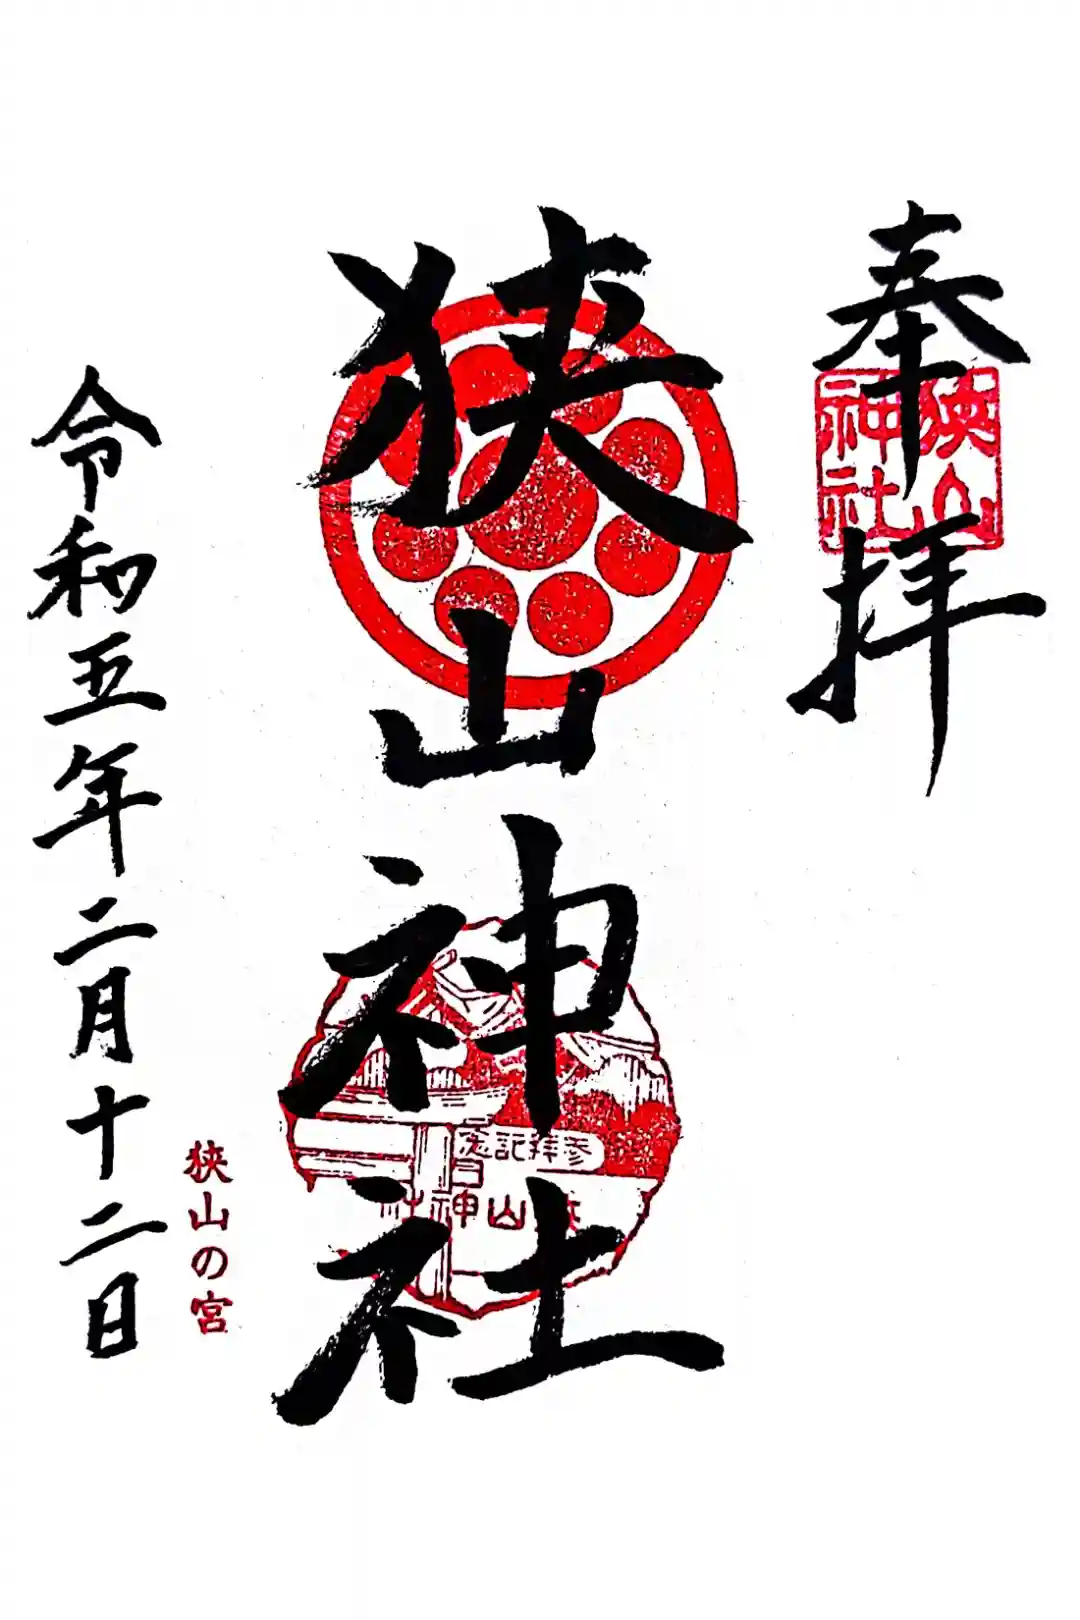 奉拝
狭山神社
狭山神社
参拝記念
狭山神社
狭山の宮
令和五年二月十二日